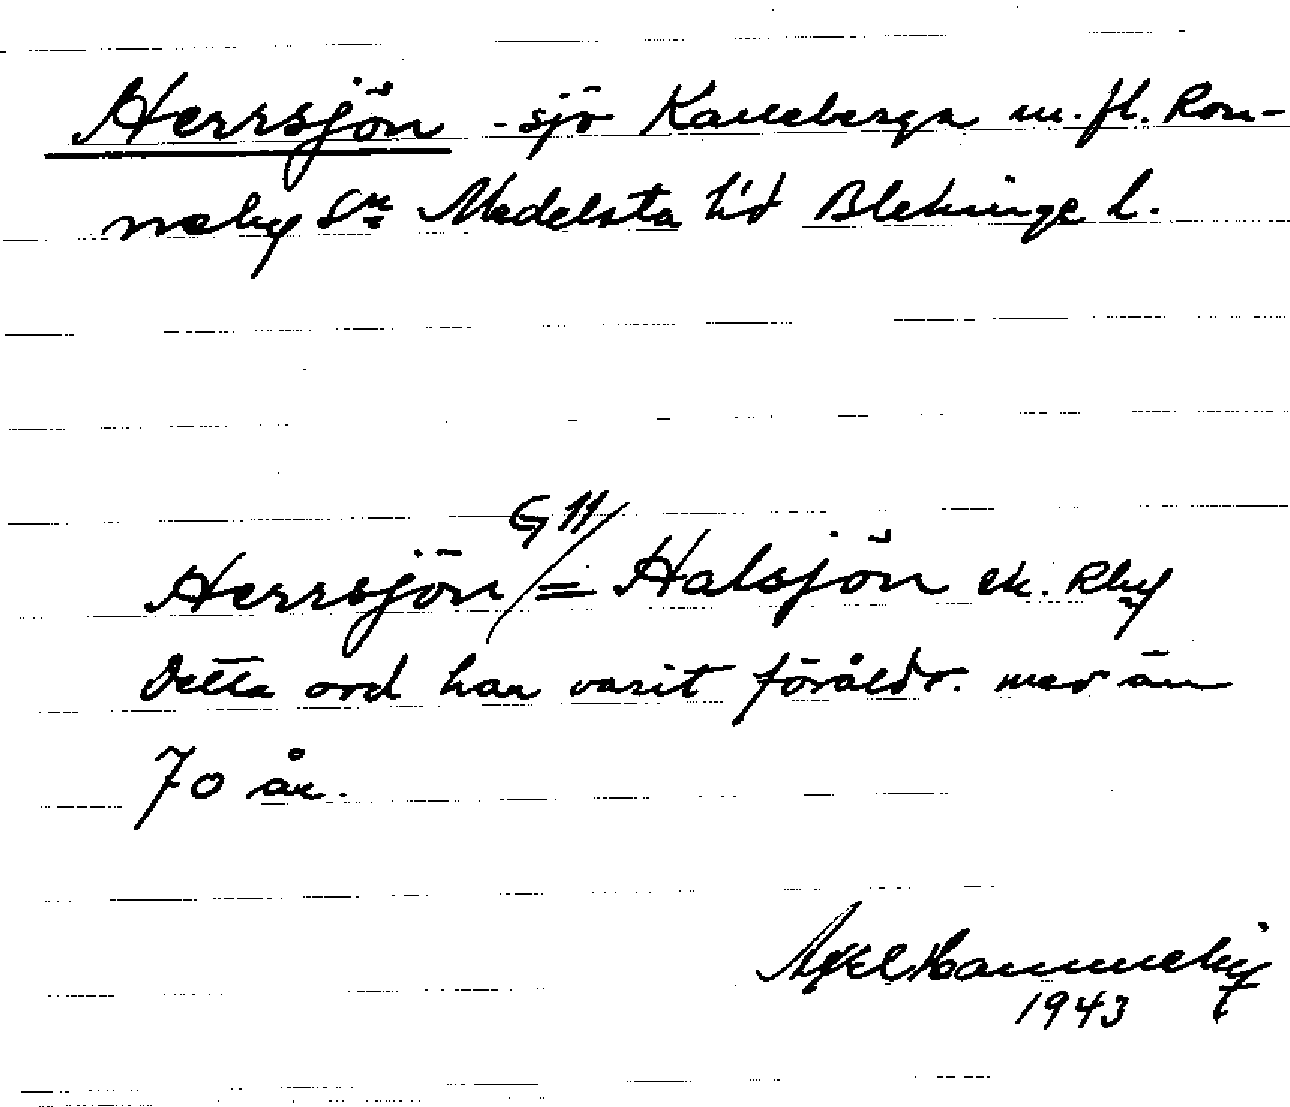 Herrsjön - sjö Kalleberga m. fl. Ron-
neby Sn Medelsta hd Blekinge l.
G 11
Herrsjön = Halsjön ek. Rby
Detta ord har varit föråldr. mer än
70 år.
Axel Hammeby
1943